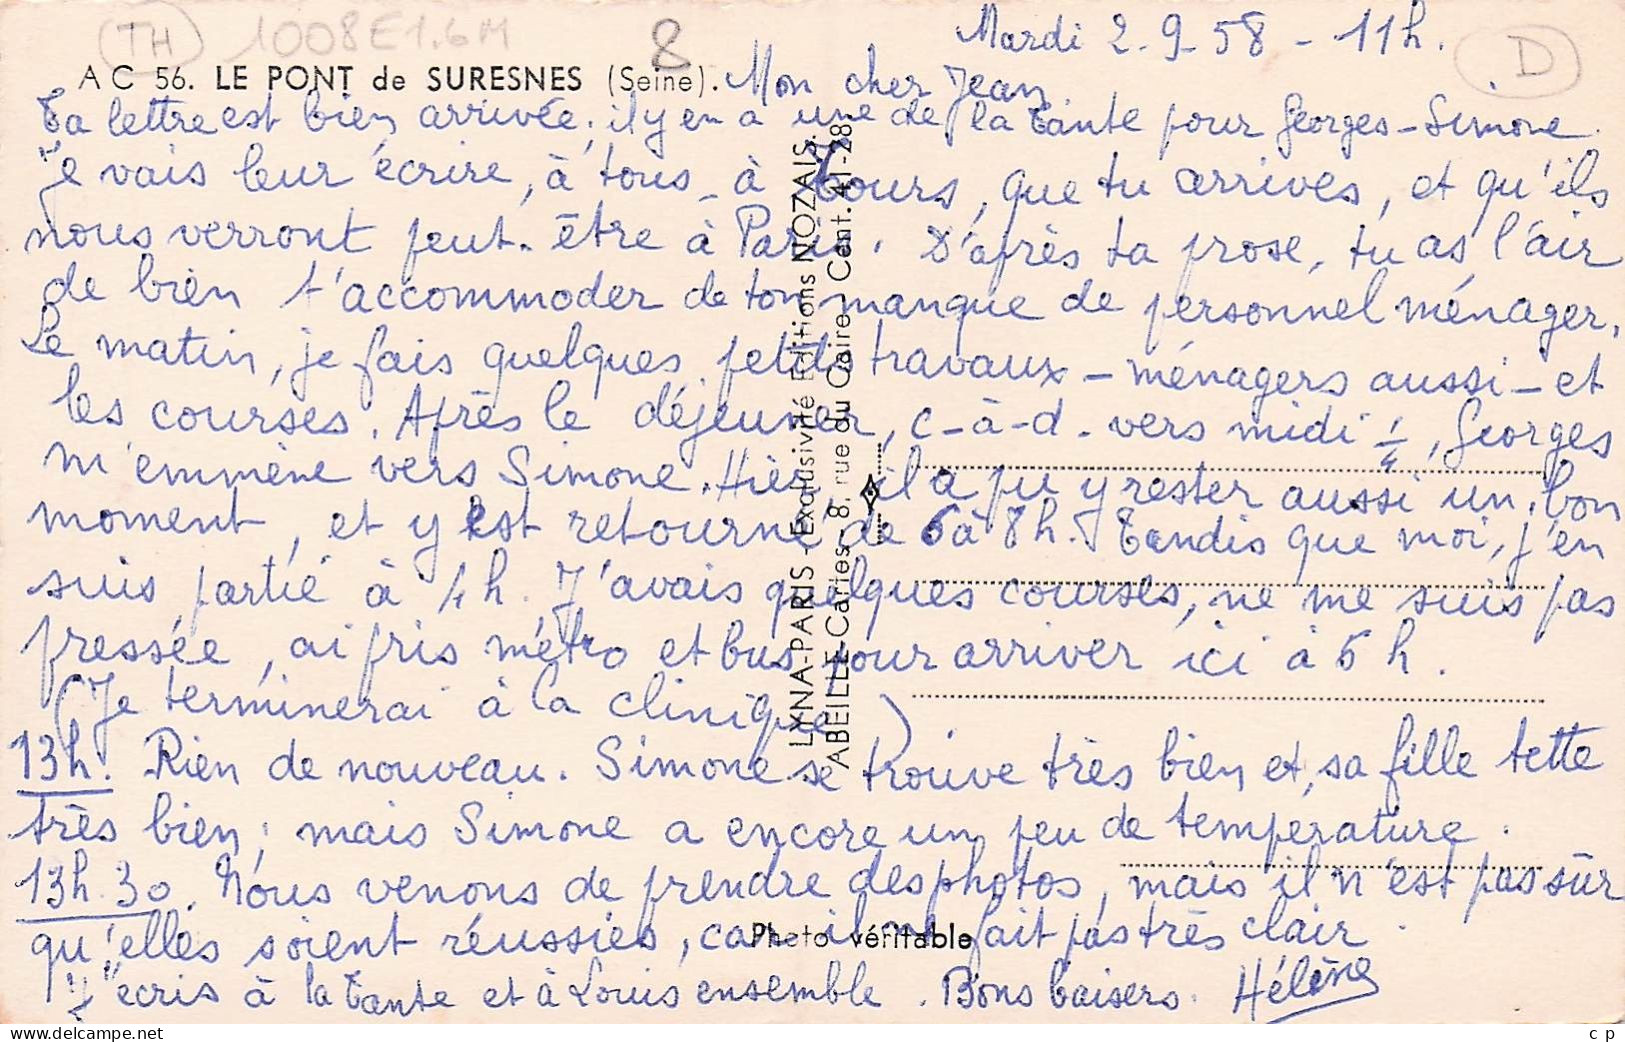 TH 1008E1.6M 8 Mardi 2-9-58 - 11h. D
A C 56. LE PONT de SURESNES (Seine). Mon cher Jean,
Ta lettre est bien arrivée; il y en a une de la Tante pour Georges-Simone.
Je vais leur écrire, à tous - à Tours, que tu arrives, et qu'ils
nous verront peut-être à Paris. D'après ta prose, tu as l'air
de bien t'accommoder de ton manque de personnel ménager.
Le matin, je fais quelques petits travaux - ménagers aussi - et
les courses. Après le déjeuner, c-à-d. vers midi 1/4, Georges
m'emmène vers Simone. Hier, il a pu y rester aussi un bon
moment, et y est retourné de 6 à 8h. Tandis que moi, j'en
suis partie à 4h. J'avais quelques courses, ne me suis pas
pressée, ai pris métro et bus pour arriver ici à 6 h.
(Je terminerai à la clinique).
13h. Rien de nouveau. Simone se trouve très bien et sa fille tette
très bien; mais Simone a encore un peu de température.
13h.30. Nous venons de prendre des photos, mais il n'est pas sûr
qu'elles soient réussies, car il ne fait pas très clair.
J'écris à la Tante et à Louis ensemble. Bons baisers. Hélène
LYNA-PARIS - Exclusivité Editions NOZAIS.
ABEILLE-Cartes, 8, rue du Caire - Cent. 41-28
Photo véritable
www.delcampe.net
c p